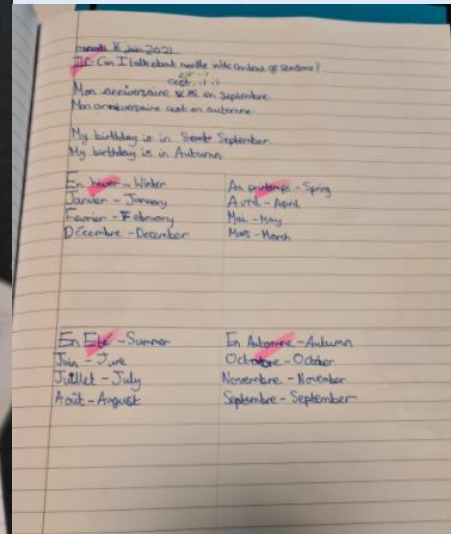 mercredi 16 juin 2021
LI: Can I talk about months in the context of seasons?
est - is
c'est - it is
Mon anniversaire est en Septembre
Mon anniversaire cest en automne
My birthday is in September
My birthday is in Autumn
En hiver - Winter
Janvier - January
Fevrier - February
Décembre - December
Au printemps - Spring
Avril - April
Mai - May
Mars - March
En Eté - Summer
Juin - June
Juillet - July
Août - August
En Automne - Autumn
Octobre - October
Novembre - November
Septembre - September